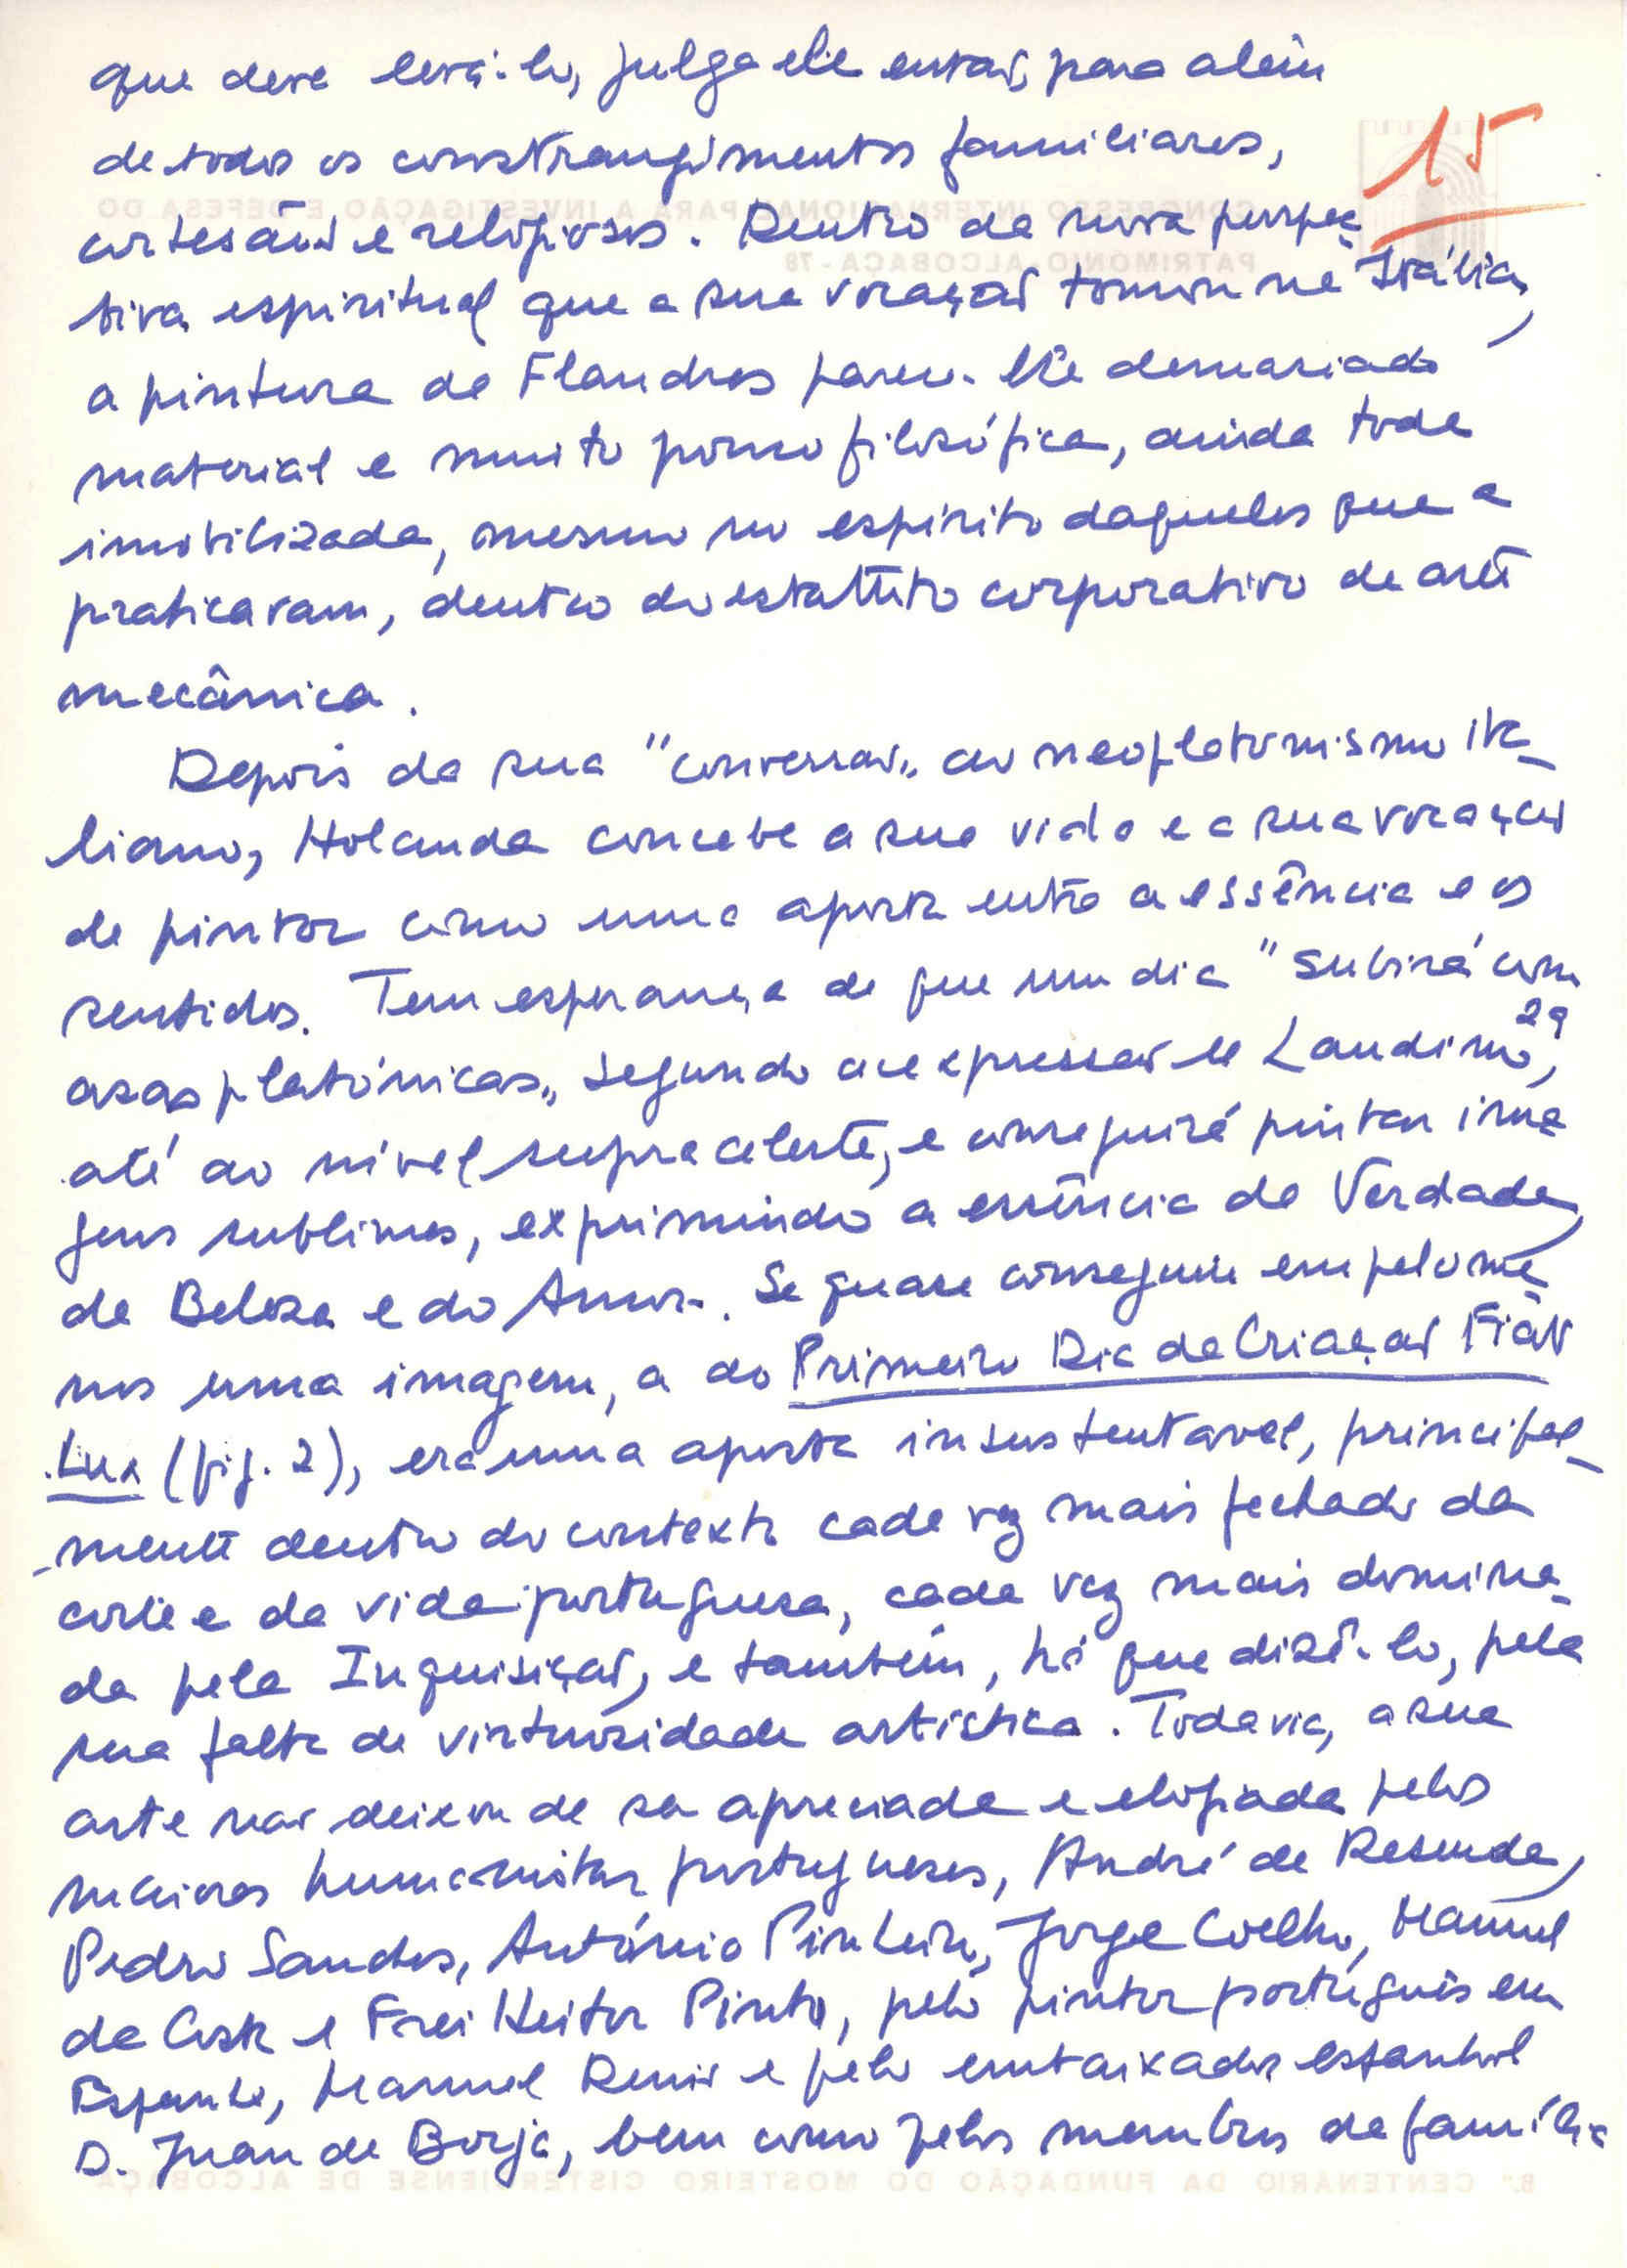 que deve levá-lo, julga ele então, para além
15
de todos os constrangimentos familiares,
cortesãos e religiosos. Dentro da nova perspec
tiva espiritual que a sua vocação tomou na Itália,
a pintura da Flandres parece-lhe demasiado
material e muito pouco filosófica, ainda toda
imobilizada, mesmo no espírito daqueles que a
praticavam, dentro do estatuto corporativo de arte
mecânica.
Depois da sua "conversão" ao neoplatonismo ita-
liano, Holanda concebe a sua vida e a sua vocação
de pintor como uma aposta entre a essência e os
sentidos. Tem esperança de que um dia "subirá com
asas platónicas" segundo a expressão de Landino,29
até ao nível supraceleste, e conseguirá pintar ima
gens sublimes, exprimindo a essência da Verdade,
da Beleza e do Amor. Se quase conseguiu em pelo me
nos uma imagem, a do Primeiro Dia da Criação Fiat
Lux (fig. 2), era uma aposta insustentavel, principal-
-mente dentro do contexto cada vez mais fechado da
corte e da vida portuguesa, cada vez mais domina-
da pela Inquisição, e também, há que dizê-lo, pela
sua falta de virtuosidade artística. Todavia, a sua
arte não deixou de ser apreciada e elogiada pelos
maiores humanistas portugueses, André de Resende,
Pedro Sanches, António Pinheiro, Jorge Coelho, Manuel
da Costa e Frei Heitor Pinto, pelo pintor português em
Espanha, Manuel Denis e pelo embaixador espanhol
D. Juan de Borja, bem como pelos membros da família
CONGRESSO INTERNACIONAL PARA A INVESTIGAÇÃO E DEFESA DO
PATRIMÓNIO-ALCOBAÇA-78
8.º CENTENÁRIO DA FUNDAÇÃO DO MOSTEIRO CISTERCIENSE DE ALCOBAÇA